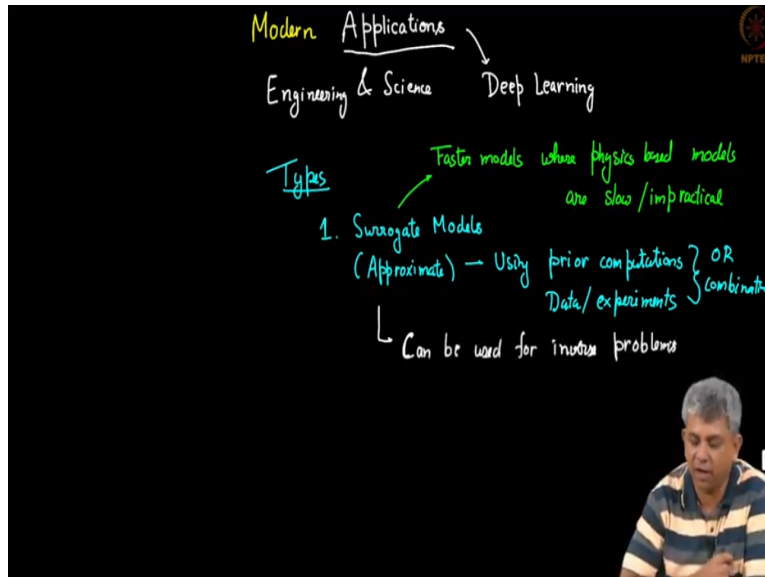 Modern Applications
Engineering & Science Deep Learning
Types
Faster models where physics based models
are slow/impractical
1. Surrogate Models
(Approximate) – Using prior computations } OR
Data/experiments } combinatio
Can be used for inverse problems
NPTE